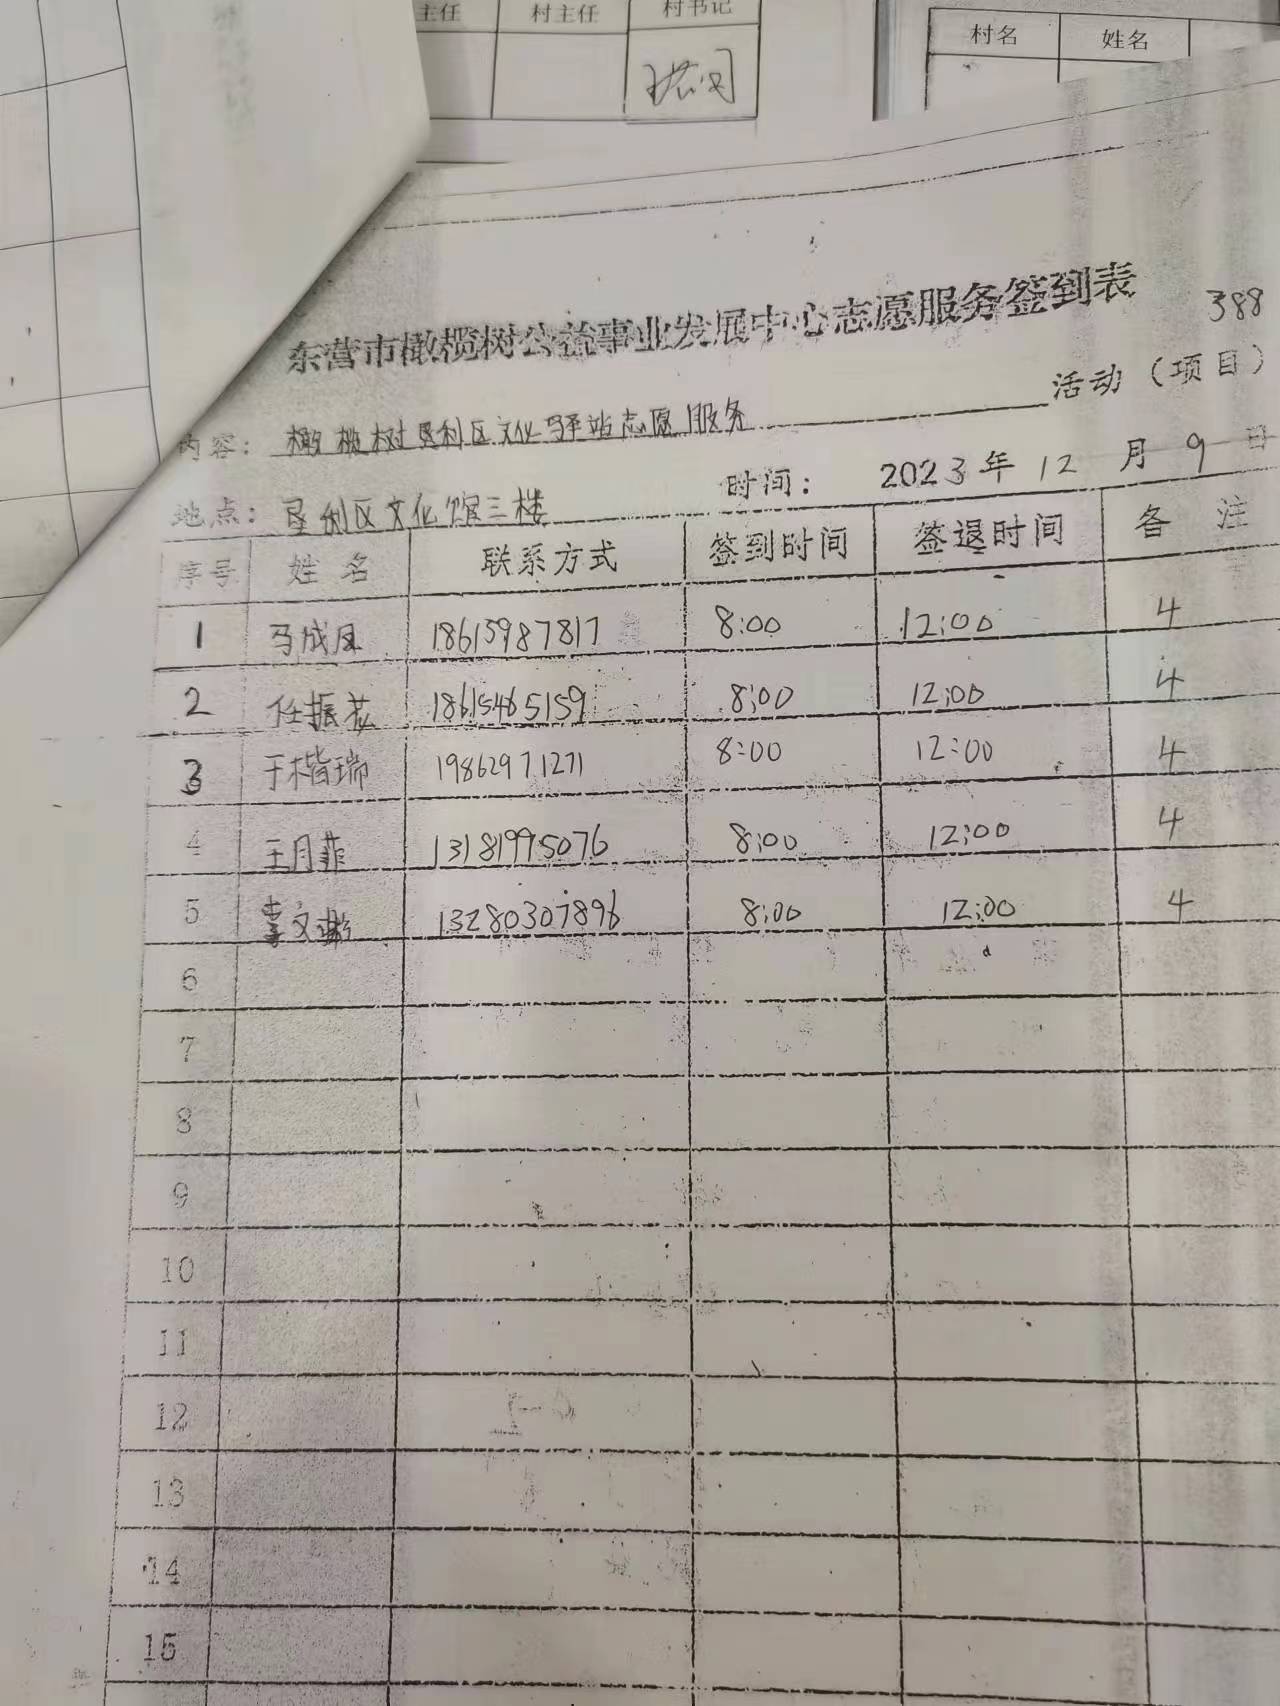 主任 村主任 村书记
村名 姓名
东营市橄榄树公益事业发展中心志愿服务签到表
388
内容：橄榄树垦利区文化驿站志愿服务 活动（项目）
地点：垦利区文化馆三楼 时间：2023年12月9日
序号 姓名 联系方式 签到时间 签退时间 备注
1 马成凤 18615987817 8:00 12:00 4
2 任振花 18615465159 8:00 12:00 4
3 于楷瑞 19862971271 8:00 12:00 4
4 王月菲 13181995076 8:00 12:00 4
5 李文 13280307896 8:00 12:00 4
6
7
8
9
10
11
12
13
14
15